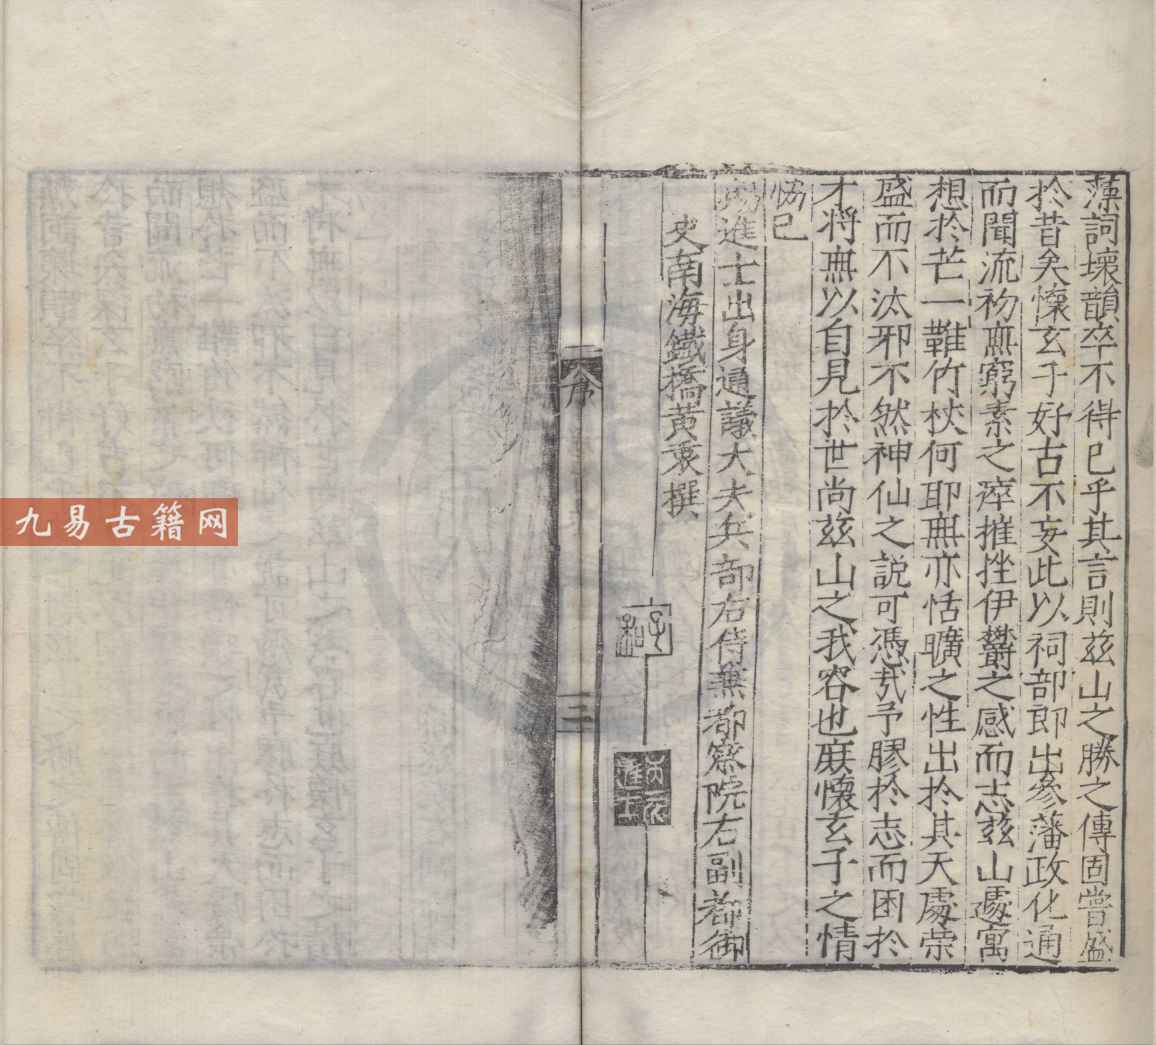 藻詞壞韻卒不得已乎其言則茲山之勝之傳固嘗盛
於昔矣懷玄子好古不妄此以祠部郎出參藩政化通
而聞流初無窮素之瘁摧挫伊欝之感而志茲山遽寓
想於芒一難竹杖何耶無亦恬曠之性出於其天處榮
盛而不汰邪不然神仙之説可憑㢤予膠於志而困於
才将無以自見於世尚茲山之我容也庶懷玄子之情
恊已
賜進士出身通議大夫兵部右侍無都察院右副都御
史南海鐵橋黃衷撰
子和
丙辰進士
序
三
九易古籍网